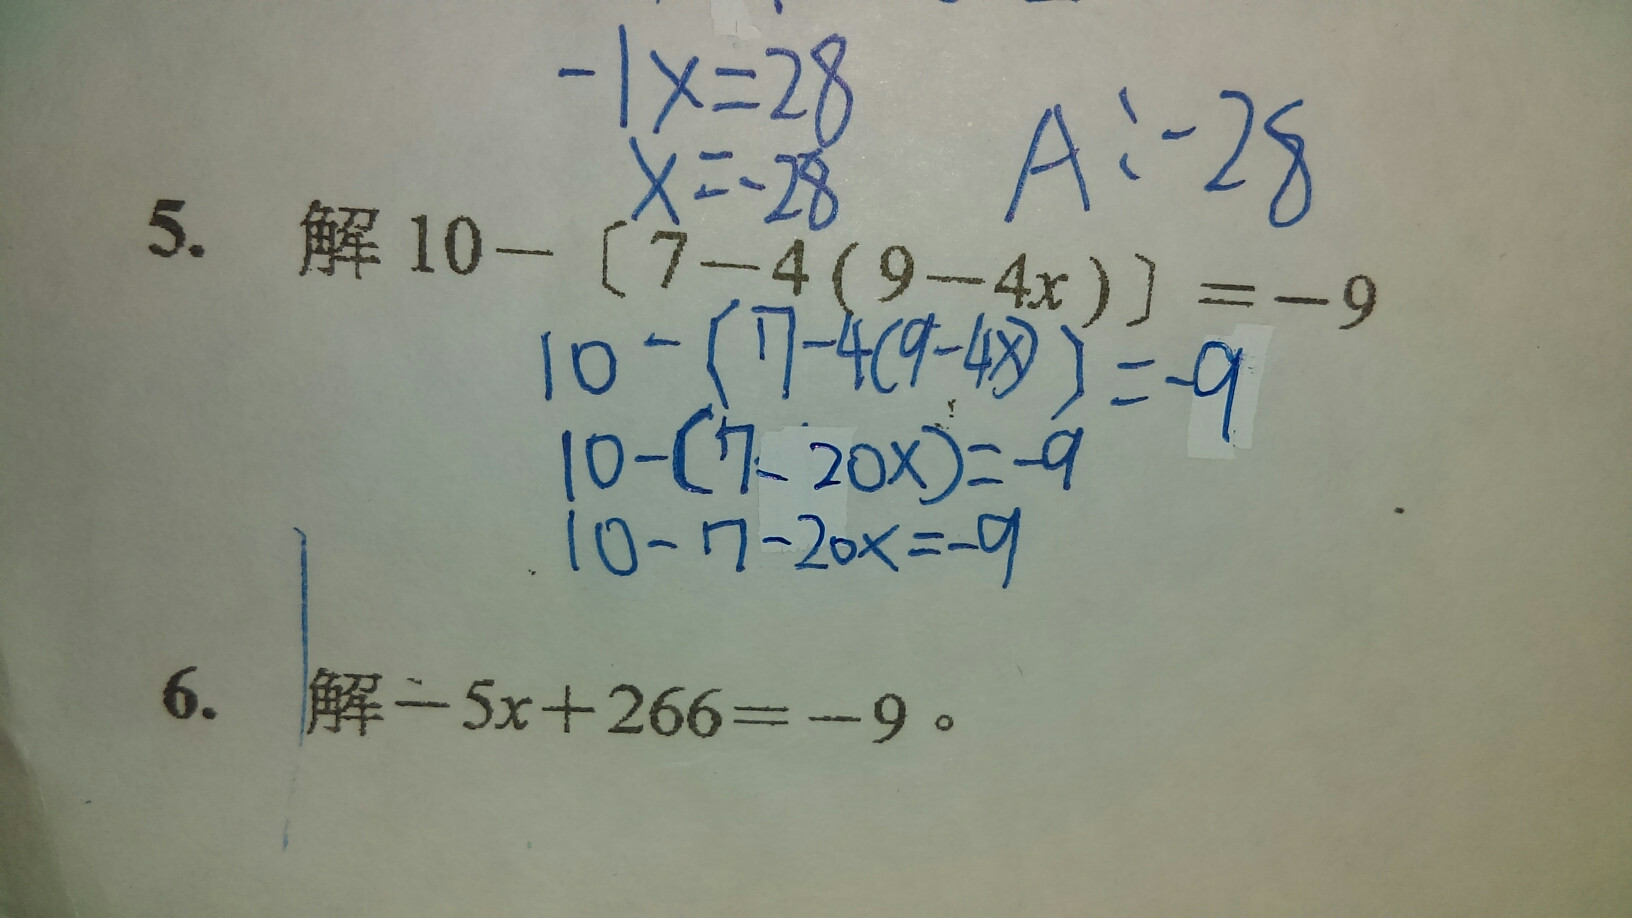 -1x=28
x=-28 A:-28
5. 解 10－〔7－4(9－4x)〕=－9
10-(7-4(9-4x))=-9
10-(7-20x)=-9
10-7-20x=-9
6. 解－5x＋266=－9。